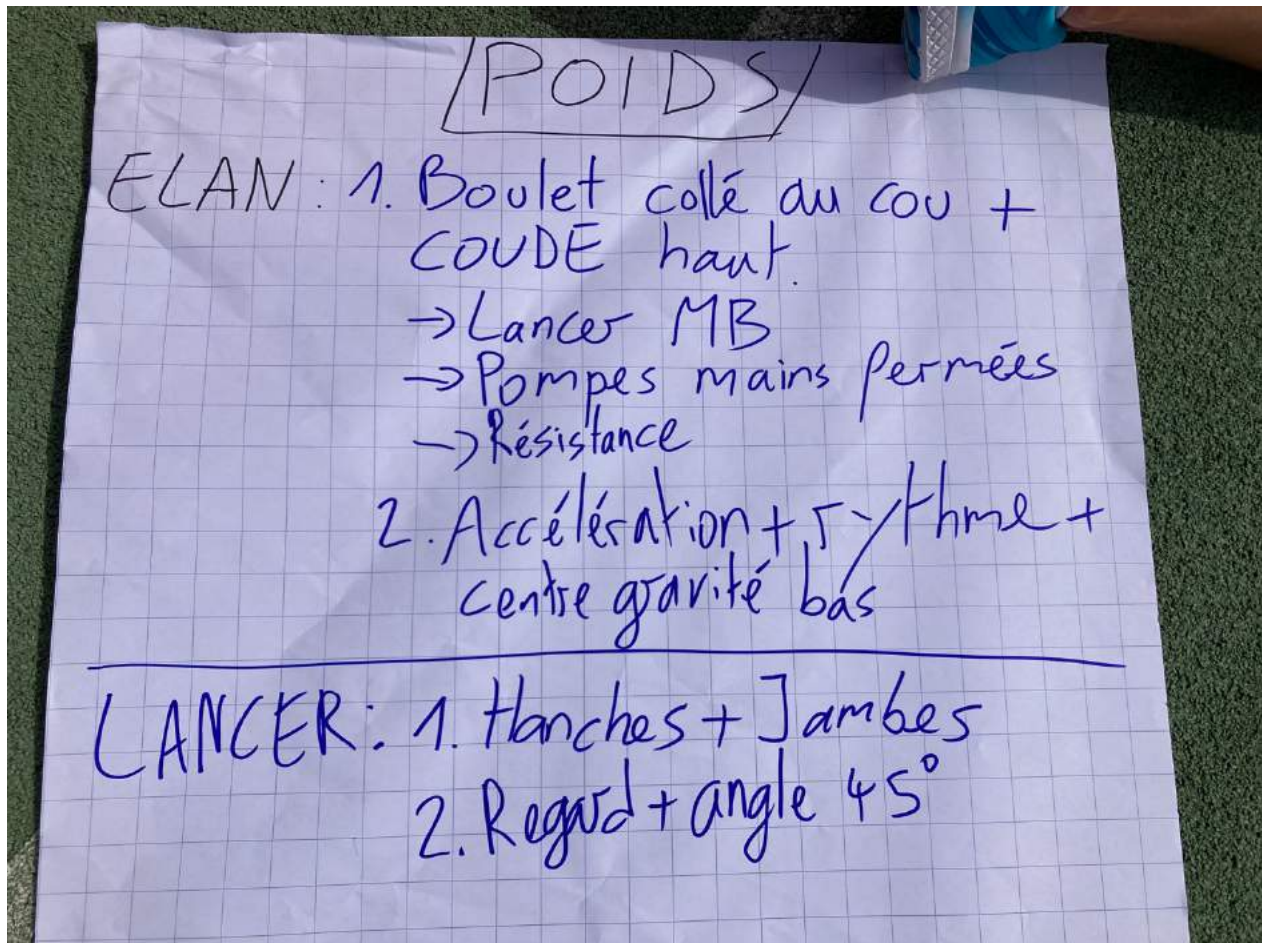 POIDS
ELAN : 1. Boulet collé au cou +
COUDE haut.
→ Lancer MB
→ Pompes mains fermées
→ Résistance
2. Accélération + rythme +
centre gravité bas
LANCER : 1. Hanches + Jambes
2. Regard + angle 45°